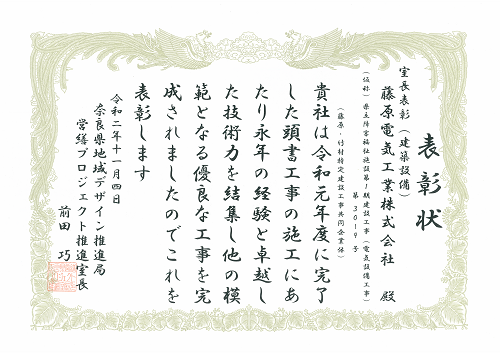 表彰状
室長表彰(建築設備)
藤原電気工業株式会社 殿
(仮称)県立障害福祉施設第1期建設工事(電気設備工事)
第3019号
(藤原・竹村特定建設工事共同企業体)
貴社は令和元年度に完了
した頭書工事の施工にあ
たり永年の経験と卓越し
た技術力を結集し他の模
範となる優良な工事を完
成されましたのでこれを
表彰します
令和二年十一月四日
奈良県地域デザイン推進局
営繕プロジェクト推進室長
前田 巧